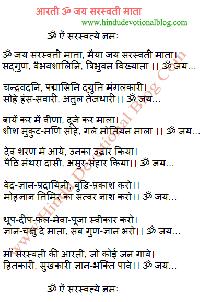 आरती ॐ जय सरस्वती माता
www.hindudevotionalblog.com
ॐ ऐं सरस्वत्यै नमः
ॐ जय सरस्वती माता, मैया जय सरस्वती माता।
सद्‍गुण, वैभवशालिनि, त्रिभुवन विख्याता ।। ॐ जय...
चन्द्रवदनि, पद्मासिनि द्युति मंगलकारी।
सोहे हंस-सवारी, अतुल तेजधारी ।। ॐ जय...
बायें कर में वीणा, दूजे कर माला।
शीश मुकुट-मणि सोहे, गले मोतियन माला ।। ॐ जय...
देव शरण में आये, उनका उद्धार किया।
पैठि मंथरा दासी, असुर-संहार किया।। ॐ जय...
वेद-ज्ञान-प्रदायिनी, बुद्धि-प्रकाश करो।।
मोहज्ञान तिमिर का सत्वर नाश करो।। ॐ जय...
धूप-दीप-फल-मेवा-पूजा स्वीकार करो।
ज्ञान-चक्षु दे माता, सब गुण-ज्ञान भरो।। ॐ जय...
माँ सरस्वती की आरती, जो कोई जन गावे।
हितकारी, सुखकारी ज्ञान-भक्ति पावे।। ॐ जय...
ॐ ऐं सरस्वत्यै नमः